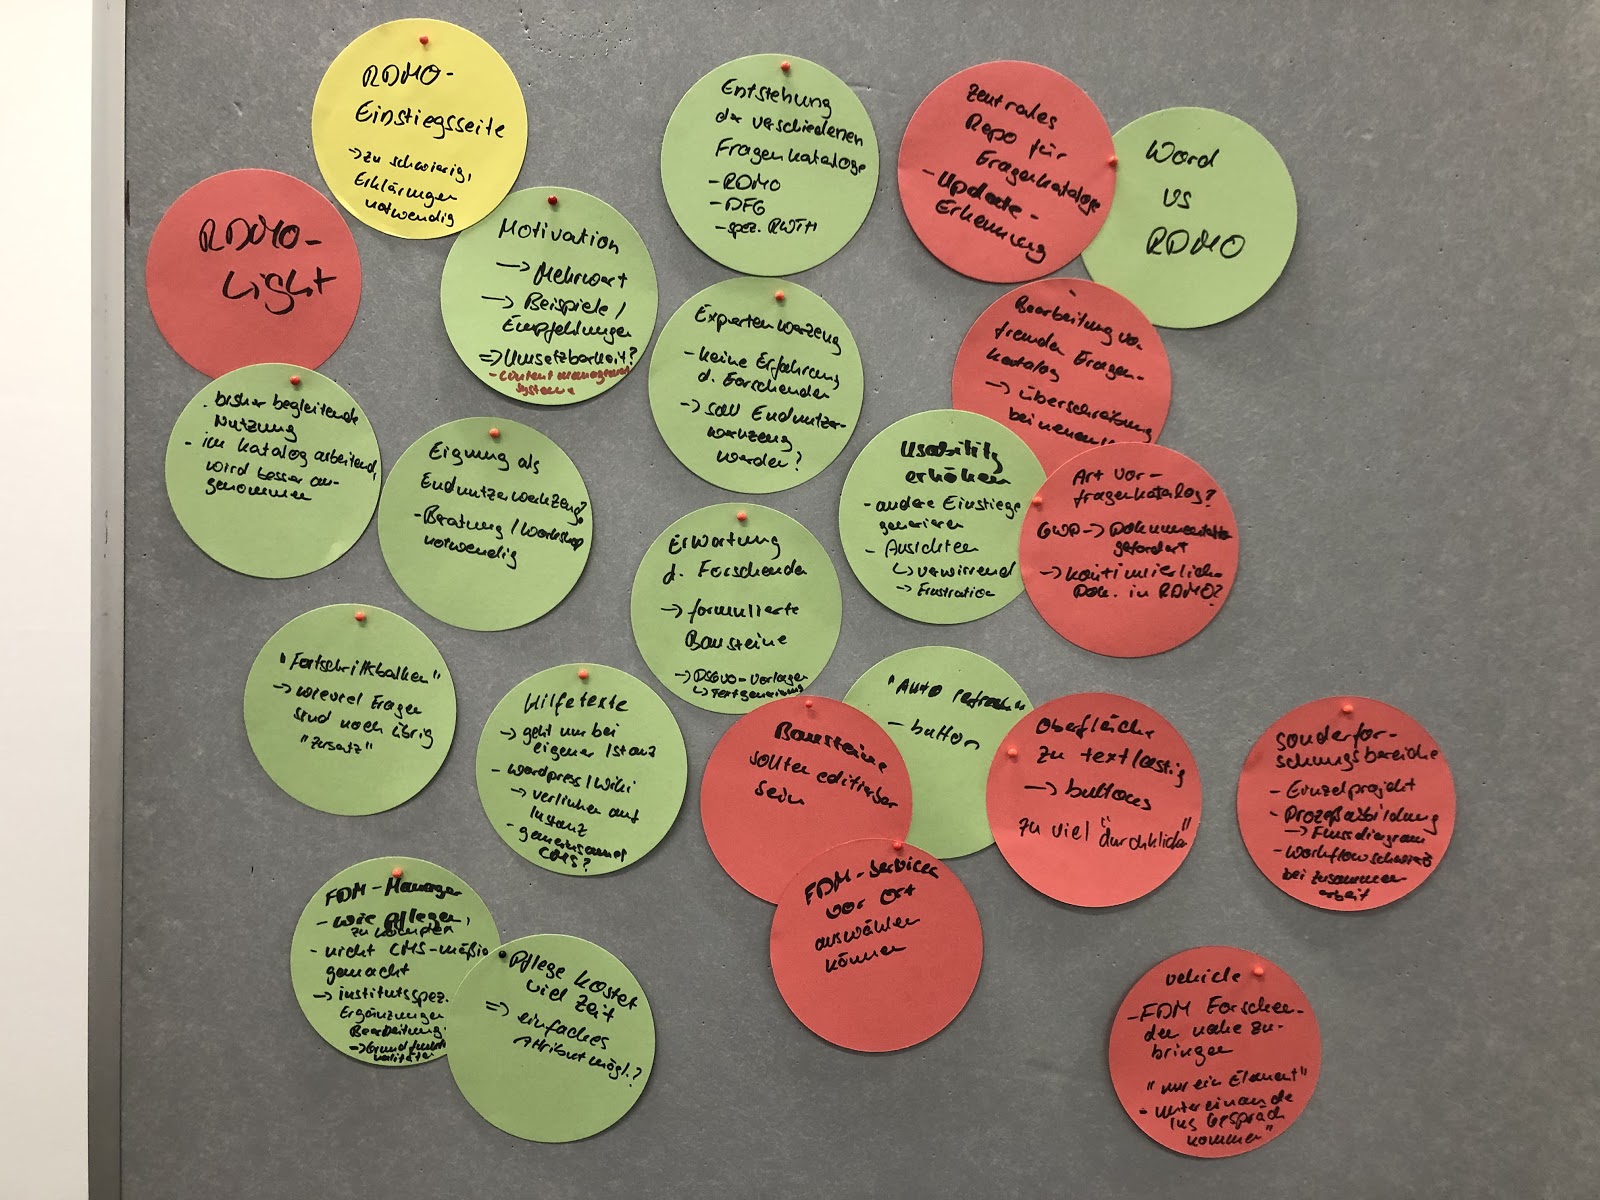 RDMO-
Einstiegsseite
-> zu schwierig,
Erklärungen
notwendig
RDMO-
Light
Motivation
-> Mehrwert
-> Beispiele /
Empfehlungen
=> Umsetzbarkeit?
- Content management
systeme
Entstehung
der verschiedenen
Fragenkataloge
- RDMO
- DFG
- spez. RWTH
Zentrales
Repo für
Fragenkataloge
- Update-
Erkennung
Word
vs
RDMO
Expertenwerkzeug
- keine Erfahrung
d. Forschenden
-> soll Endnutzer-
werkzeug
werden?
Bearbeitung von
fremden Fragen-
katalog
-> Überschreibung
bei neuem
- bisher begleitende
Nutzung
- im Katalog arbeitend,
wird besser an-
genommen
Eignung als
Endnutzerwerkzeug?
- Beratung / Workshop
notwendig
Usability
erhöhen
- andere Einstiege
generieren
- Ansichten
↳ verwirrend
-> Frustration
Art Vor-
fragenkatalog?
GWP -> Dokumentation
gefordert
-> kontinuierliche
Dok. in RDMO?
Erwartung
d. Forschenden
-> formulierte
Bausteine
-> DSGVO-Vorlagen
↳ Textgenerierung
"Fortschrittsbalken"
-> wieviel Fragen
sind noch übrig
"Zusatz"
Hilfetexte
-> geht nur bei
eigener Istanz
- Wordpress / Wiki
-> verlinken auf
Instanz
- gemeinsames
CMS?
"Auto refresh"
- button
Bausteine
sollten editierbar
sein
Oberfläche
zu textlastig
-> buttons
zu viel "durchklicken"
Sonderfor-
schungsbereiche
- Einzelprojekt
- Prozeßabbildung
-> Flussdiagram
- Workflow schwierig
bei Zusammen
arbeit
FDM-Services
vor Ort
auswählen
können
FDM-Manager
- wie pflegen,
zu komplex
- nicht CMS-mäßig
gemacht
-> institutsspez.
Ergänzungen
Bearbeitung
-> Grundfunktio
nalitäten
Pflege kostet
viel Zeit
=> einfaches
Attribut mögl.?
vehicle
- FDM Forschen-
den nahe zu-
bringen
"nur ein Element"
- untereinander
ins Gespräch
kommen"